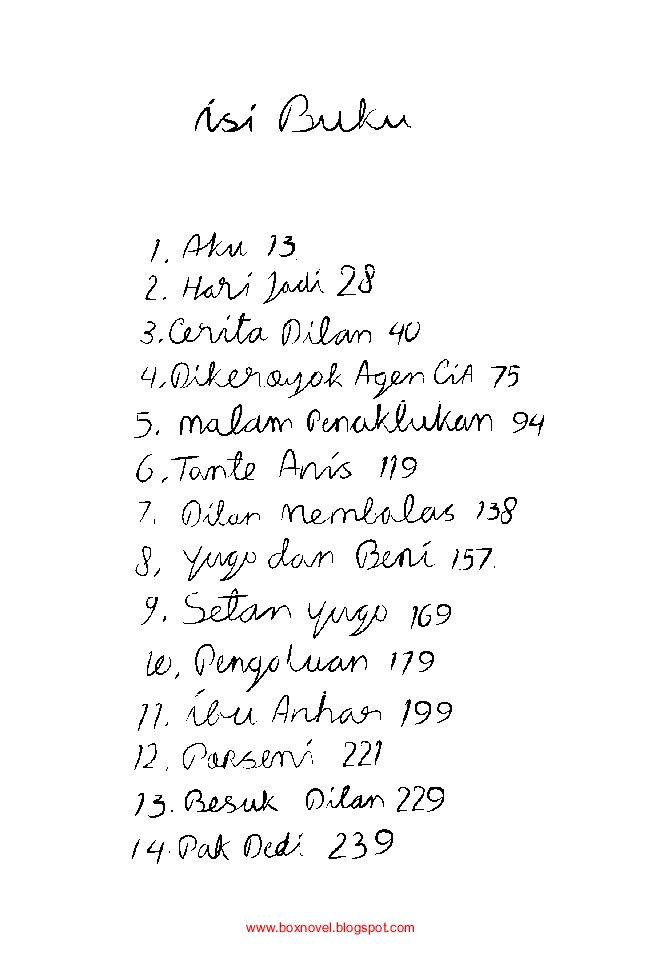 isi Buku
1. Aku 13
2. Hari Jadi 28
3. Cerita Dilan 40
4. Dikeroyok Agen CiA 75
5. malam Penaklukan 94
6. Tante Anis 119
7. Dilan membalas 138
8, yugo dan Beni 157.
9. Setan yugo 169
10, Pengaluan 179
11. ibu Anhar 199
12. Porseni 221
13. Besuk Dilan 229
14. Pak Dedi 239
www.boxnovel.blogspot.com